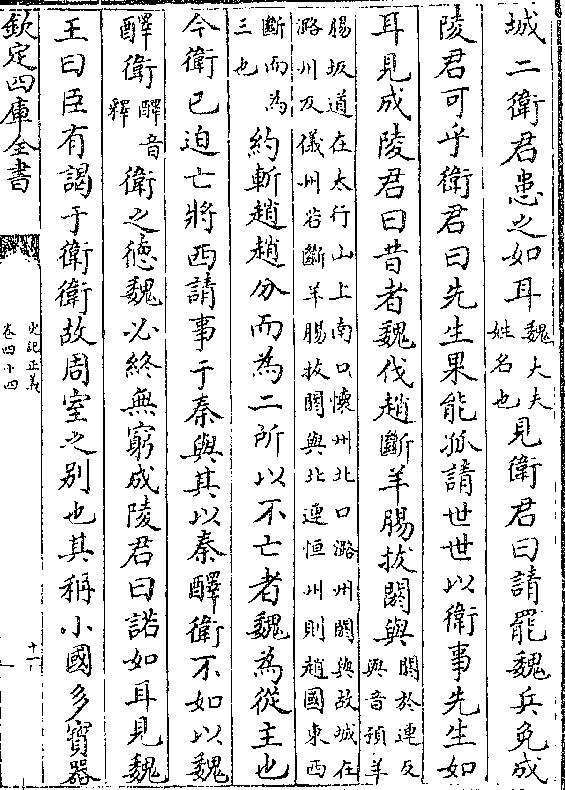 城二衛君患之如耳魏大夫姓名也見衛君曰請罷魏兵免成
陵君可乎衛君曰先生果能孤請世世以衛事先生如
耳見成陵君曰昔者魏伐趙斷羊腸拔閼與閼於連反與音預羊
腸坂道在太行山上南口懷州北口潞州閼與故城在
潞州及儀州若斷羊腸拔閼與北連恒州則趙國東西
斷而為三也約斬趙趙分而為二所以不亡者魏為從主也
今衛已迫亡將西請事于秦與其以秦醳衛不如以魏
醳衛醳音釋衛之德魏必終無窮成陵君曰諾如耳見魏
王曰臣有謁于衛衛故周室之别也其稱小國多寶器
欽定四庫全書
史記正義
卷四十四